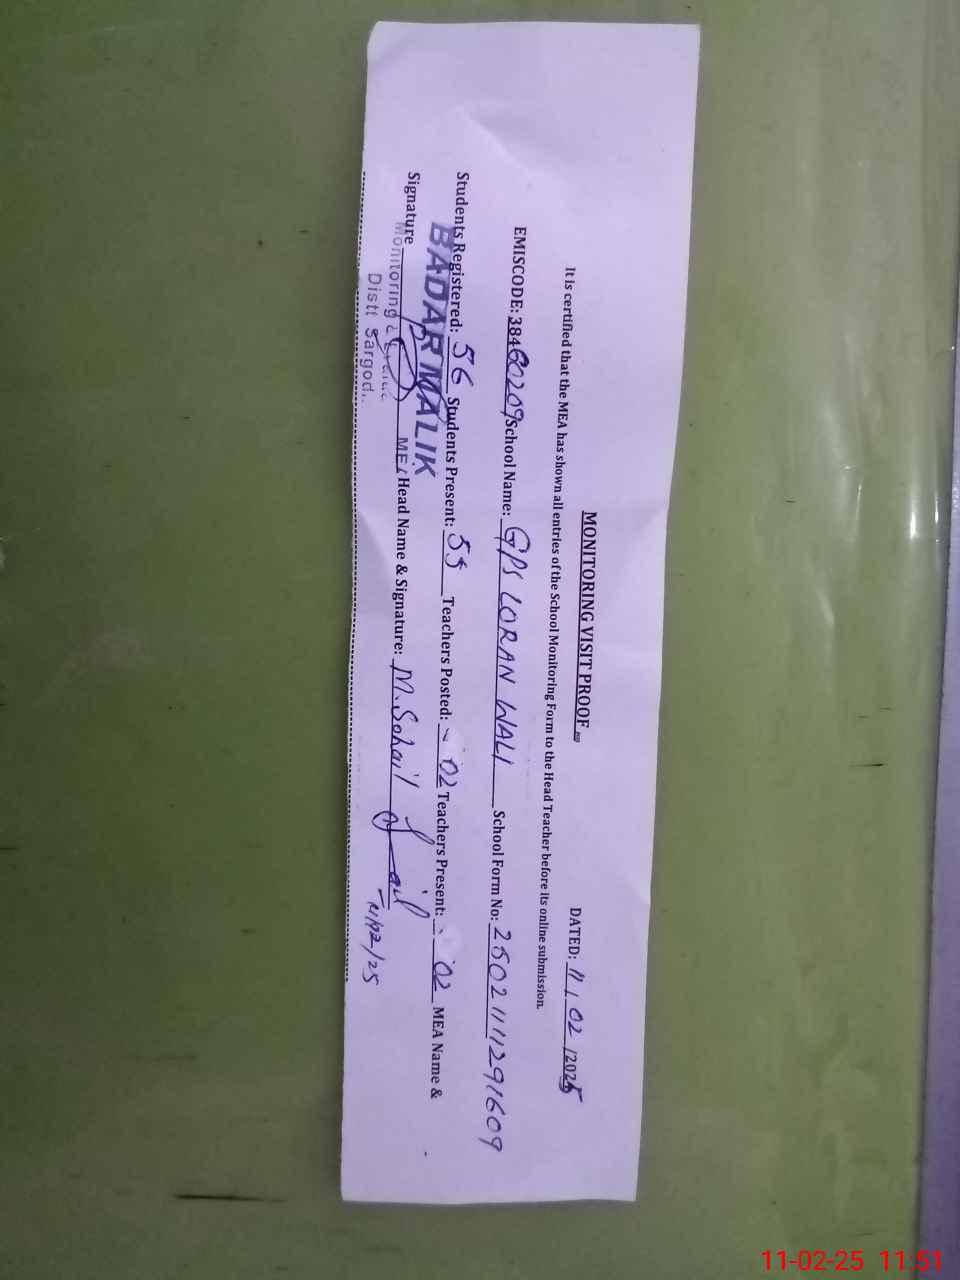 MONITORING VISIT PROOF
DATED: 11/02/2025
It is certified that the MEA has shown all entries of the School Monitoring Form to the Head Teacher before its online submission.
EMISCODE: 38460209 School Name: GPS LORAN WALI School Form No: 2502111291609
Students Registered: 56 Students Present: 55 Teachers Posted: 02 Teachers Present: 02 MEA Name &
BADAR MALIK
Signature MEA Head Name & Signature: M. Sohail
Monitoring &
Distt Sargod
11-02-25 11:51